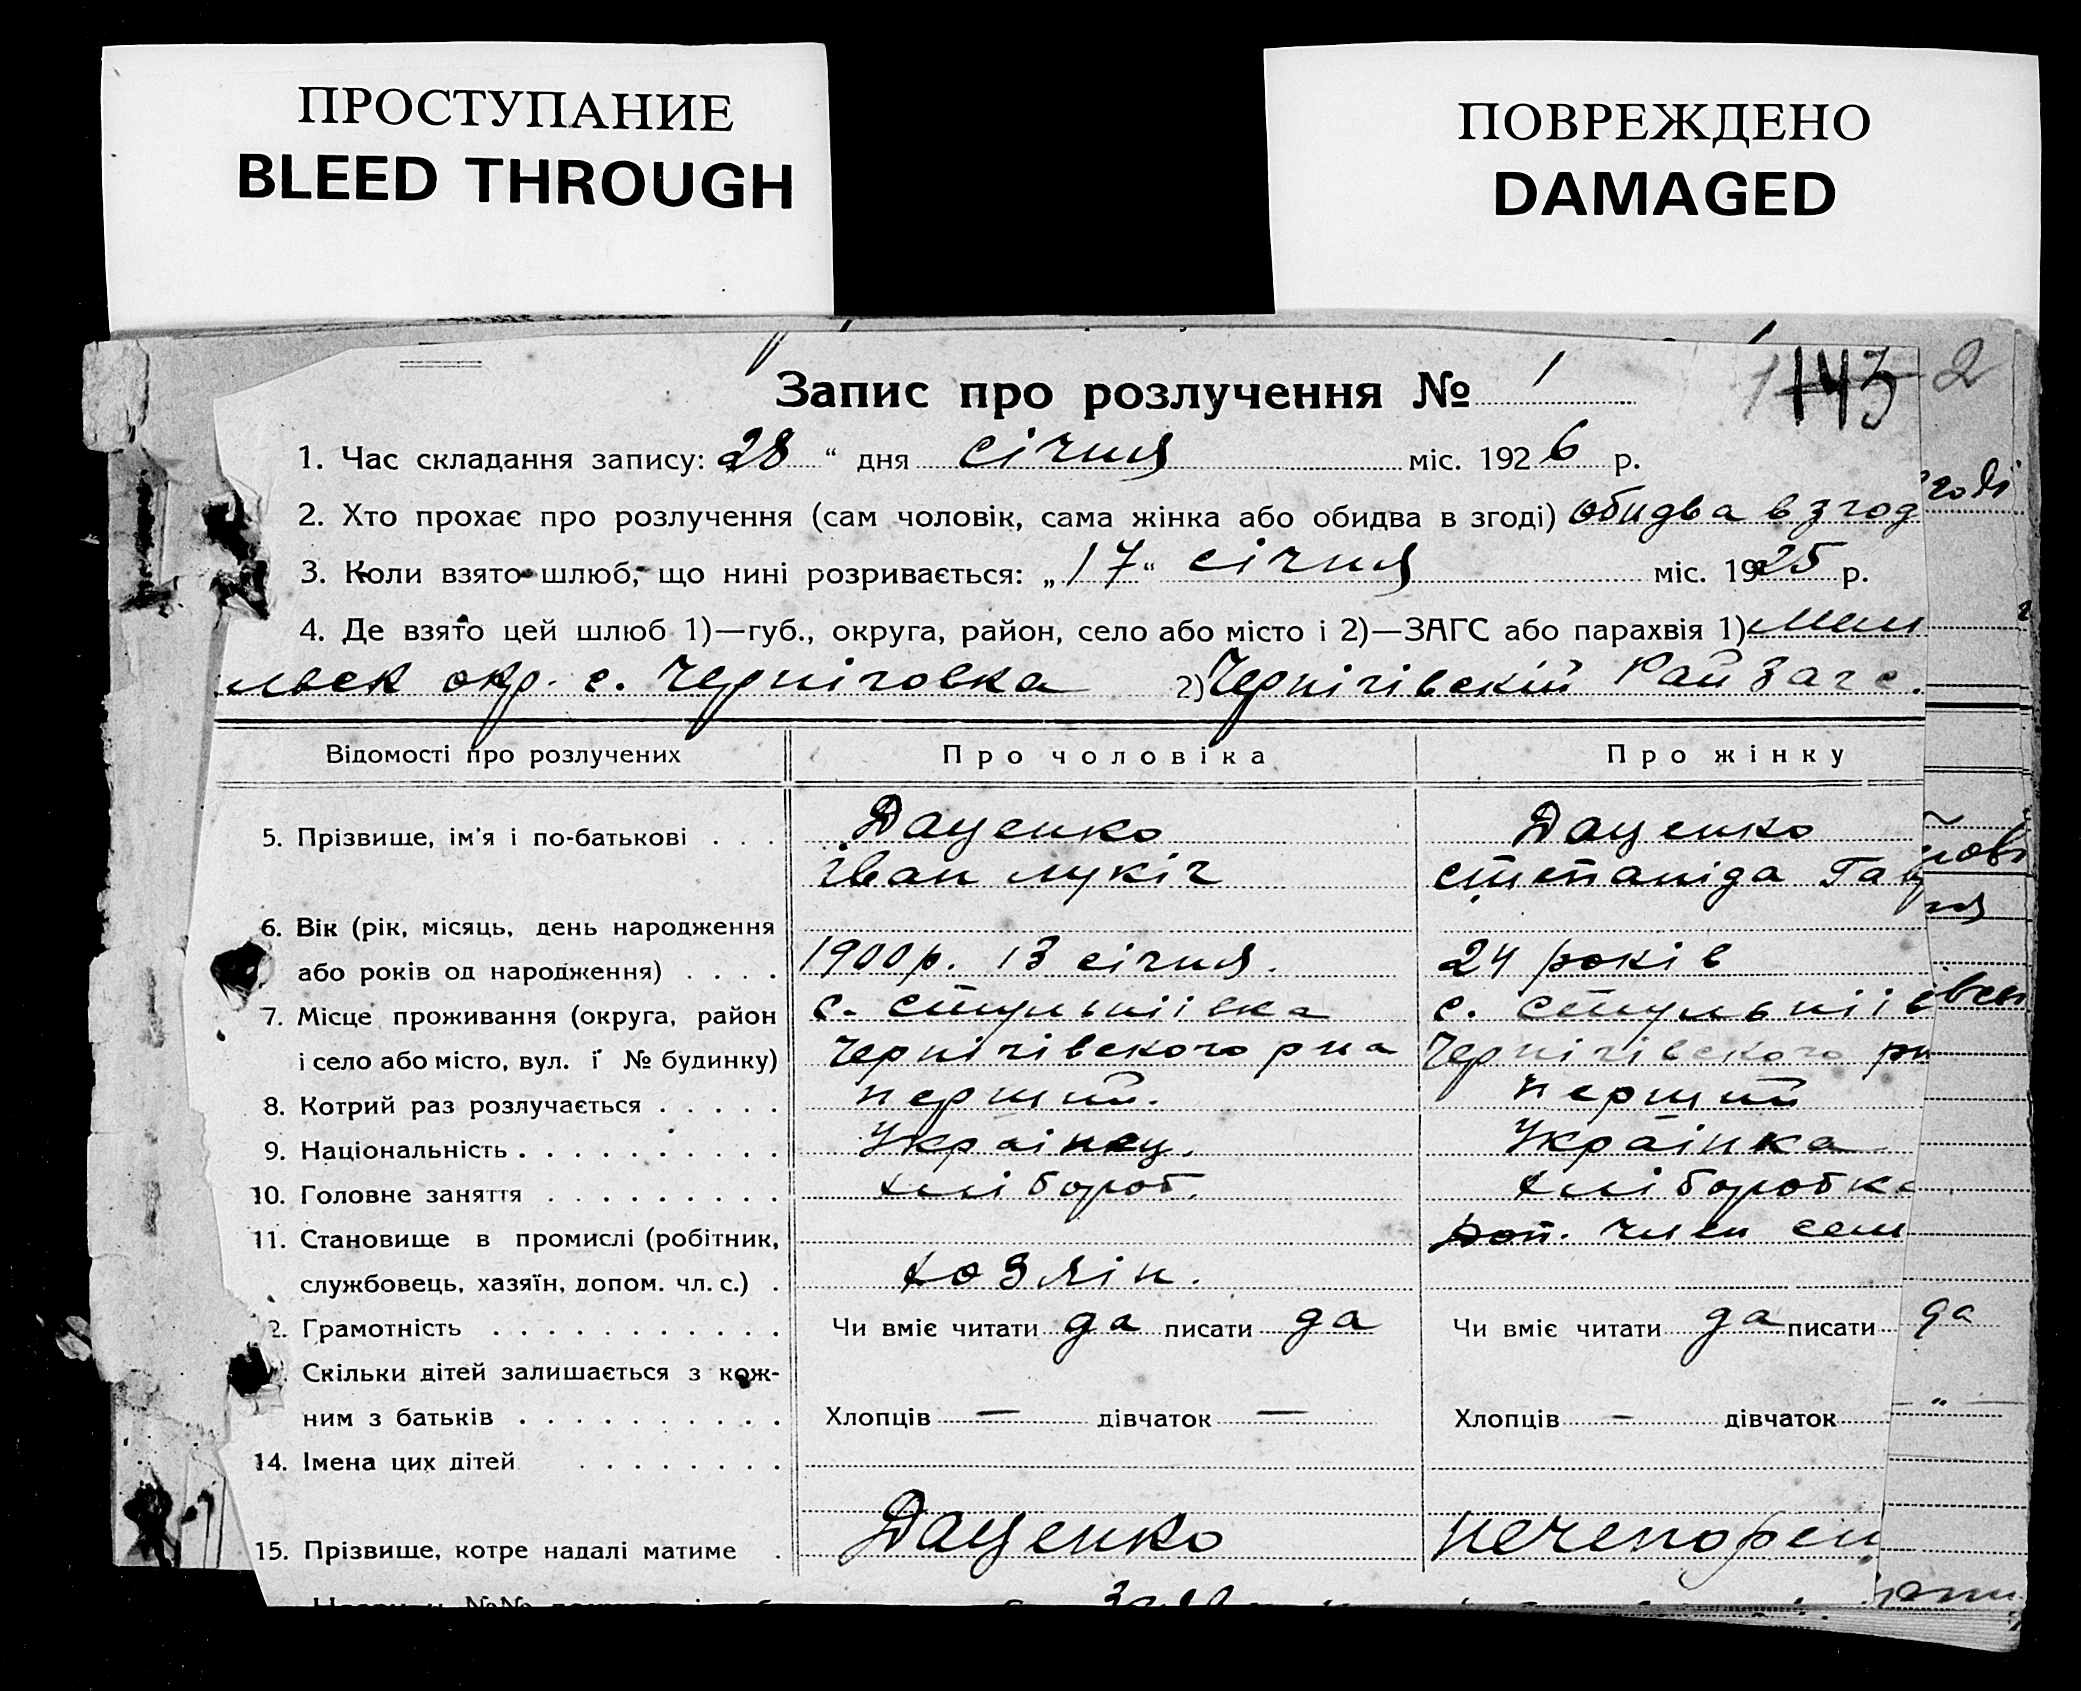 ПРОСТУПАНИЕ
BLEED THROUGH
ПОВРЕЖДЕНО
DAMAGED
Запис про розлучення № 1
143 2
1. Час складання запису: 28 “ дня січня міс. 1926 р.
2. Хто прохає про розлучення (сам чоловік, сама жінка або обидва в згоді) обидва в згод
годі
3. Коли взято шлюб, що нині розривається: „17“ січня міс. 1925 р.
4. Де взято цей шлюб 1)—губ., округа, район, село або місто і 2)—ЗАГС або парахвія 1)
окр. с. Черніговка 2) Чернігівскій Рай Загс.
Відомості про розлучених Про чоловіка Про жінку
5. Прізвище, ім'я і по-батькові . . . Даценко Даценко
Іван Лукіч Степаніда Гав
6. Вік (рік, місяць, день народження
або років од народження) . . . . 1900 р. 13 січня. 24 років
7. Місце проживання (округа, район с. Стульніівка с. Стульнії
і село або місто, вул. ї № будинку) Чернігівского рна Чернігівского рн
8. Котрий раз розлучається . . . . . перший. перший
9. Національність . . . . . . . . . . Українец. Українка
10. Головне заняття . . . . . . . . . хлібороб. хліборобка
11. Становище в промислі (робітник, поп. член сем
службовець, хазяїн, допом. чл. с.) . хозяін.
2. Грамотність . . . . . . . . . . . Чи вміє читати да писати да Чи вміє читати да писати да
Скільки дітей залишається з кож-
ним з батьків . . . . . . . . . . Хлопців — дівчаток — Хлопців – дівчаток
14. Імена цих дітей . . . . . . . .
15. Прізвище, котре надалі матиме . Даценко Нечепорен